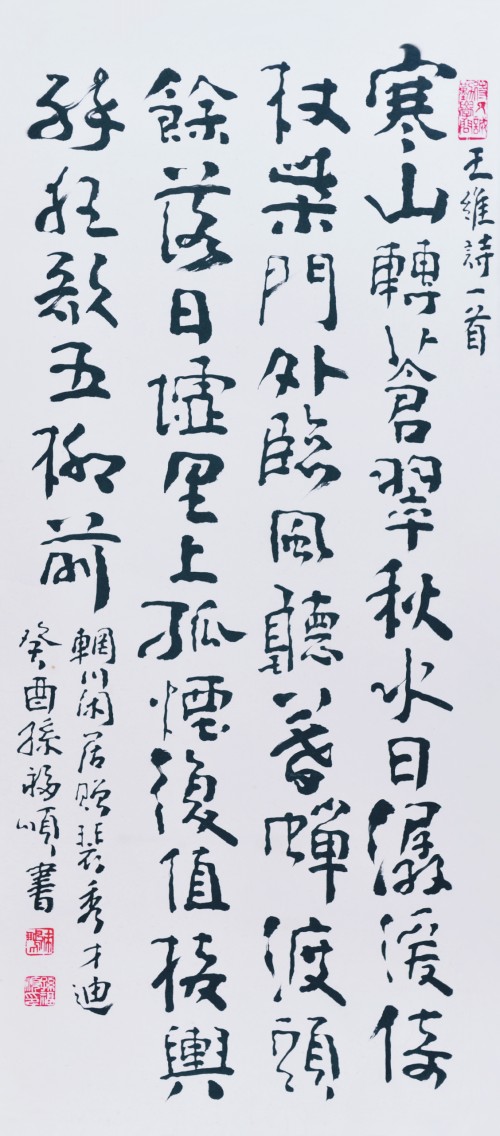 王維詩一首
寒山轉蒼翠秋水日潺湲倚
杖柴門外臨風聽暮蟬渡頭
餘落日墟里上孤煙復值接輿
醉狂歌五柳前
輞川閑居贈裴秀才迪
癸酉孫福順書